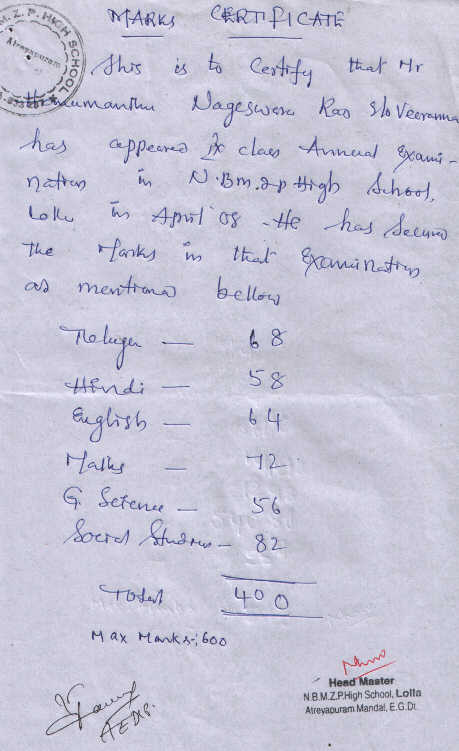 MARKS CERTIFICATE
M.Z.P. HIGH SCHOOL
Atreyapuram
This is to Certify that Mr
Hanumanthu Nageswara Rao S/o Veeranna
has appeared IX class Annual Exami-
nation in N.B.M.Z.P High School,
Lolla in April 08 - He has Secured
the Marks in that Examination
as mentioned bellow
Telugu — 68
Hindi — 58
English — 64
Maths — 72
G. Science — 56
Social Studies — 82
Total 400
Max Marks-; 600
Head Master
N.B.M.Z.P.High School, Lolla
Atreyapuram Mandal, E.G.Dt.